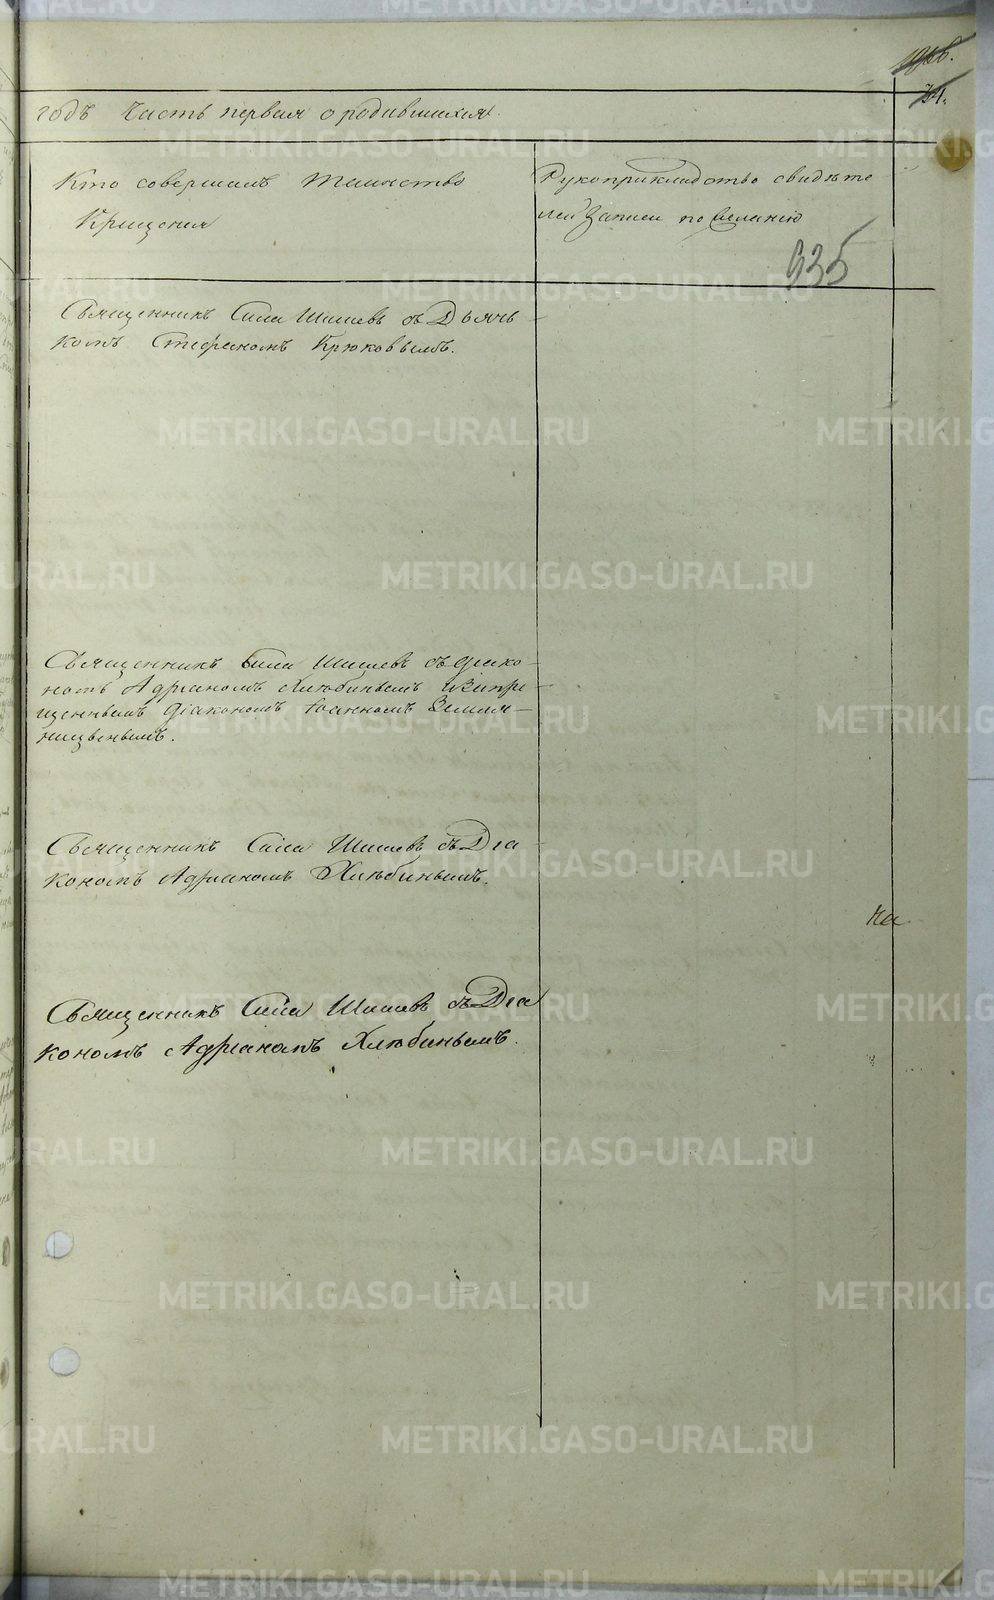 годъ Часть первая о родившихся.
Кто совершалъ таинство
Крещения
Рукоприкладство свидѣте
лей Записи по желанію
935
Священникъ Сила Шишевъ съ Дьячь
комъ Стефаномъ Крюковымъ.
Священникъ Сила Шишевъ съ діако
номъ Адрианомъ Хлѣбинымъ
діакономъ Іоанномъ
Священникъ Сила Шишевъ съ Діа
кономъ Адрианомъ Хлѣбинымъ.
Священникъ Сила Шишевъ съ Діа
кономъ Адріаномъ Хлѣбинымъ.
На
METRIKI.GASO-URAL.RU